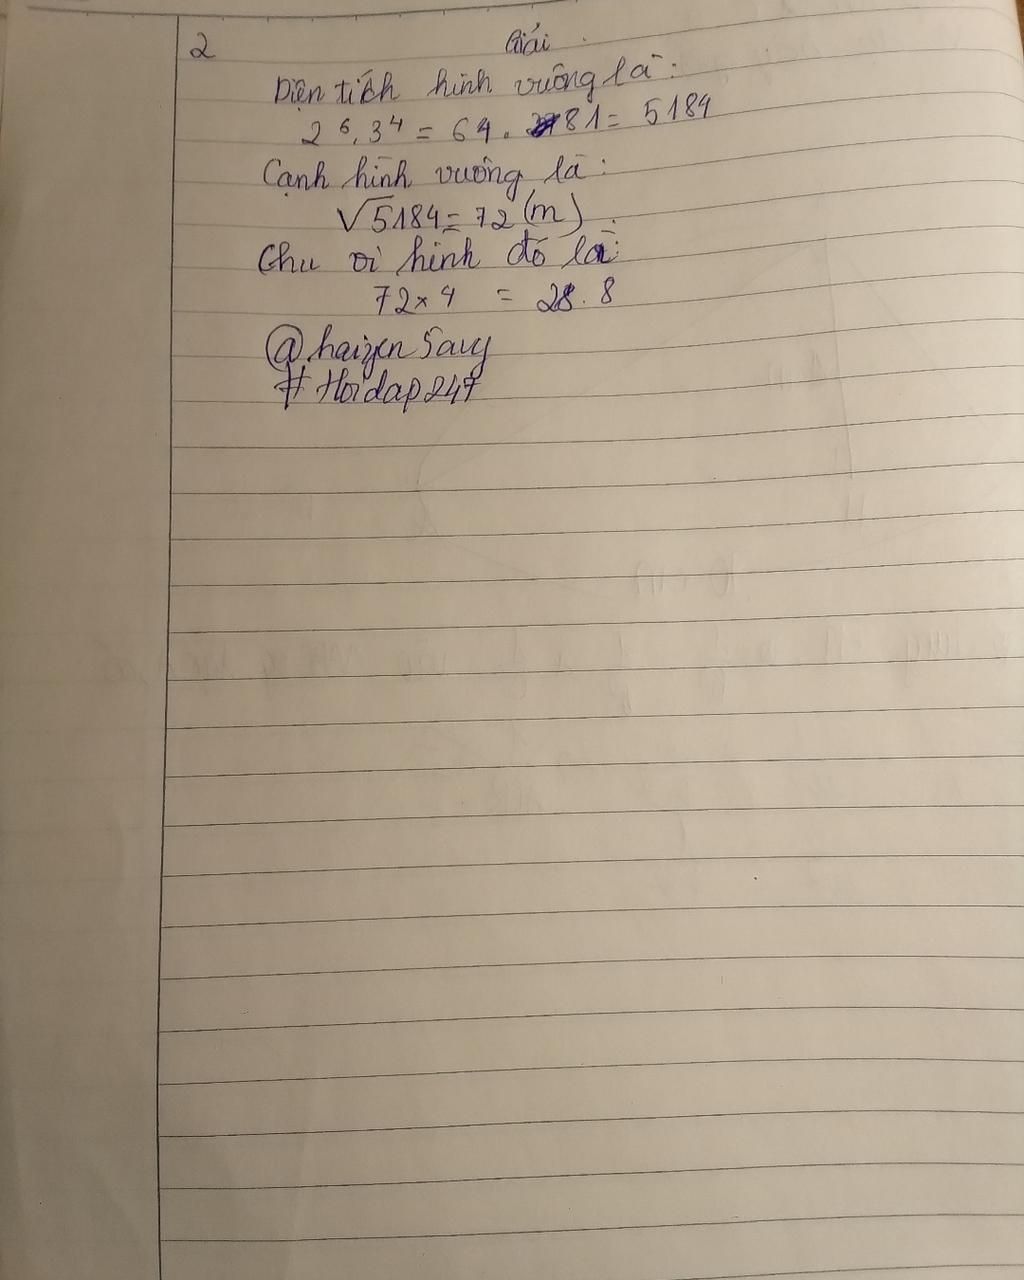 2 Giải
Diện tích hình vuông là:
2⁶.3⁴ = 64.81 = 5184
Cạnh hình vuông là:
√5184 = 72 (m)
Chu vi hình đó là:
72 × 4 = 28.8
@haiyen5auy
#Hoidap247